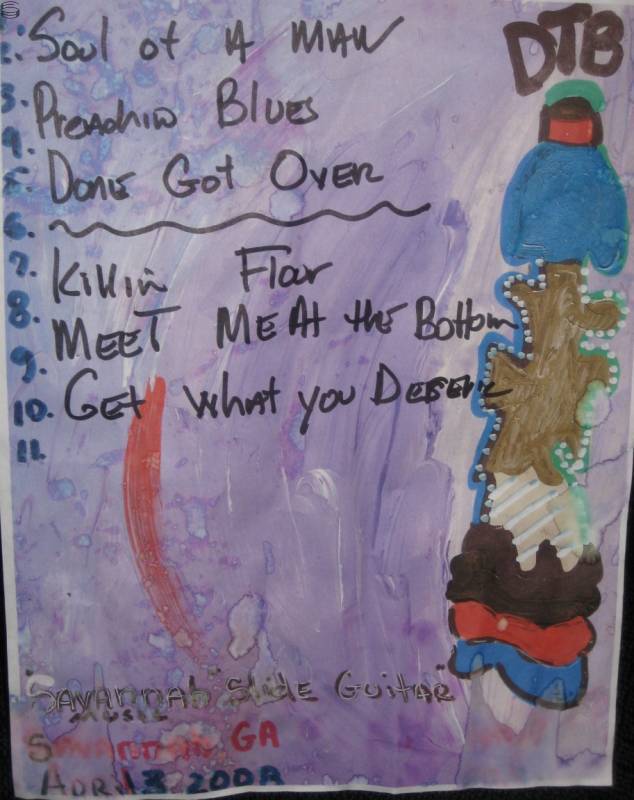 DTB
Soul of A MAN
2.
3. Preachin Blues
4.
5. Done Got Over
6.
7. Killin Floor
8. MEET ME At the Bottom
9.
10. Get What you Deserve
11.
"Savannah" Slide Guitar"
Music
Savannah, GA
April 3 2008